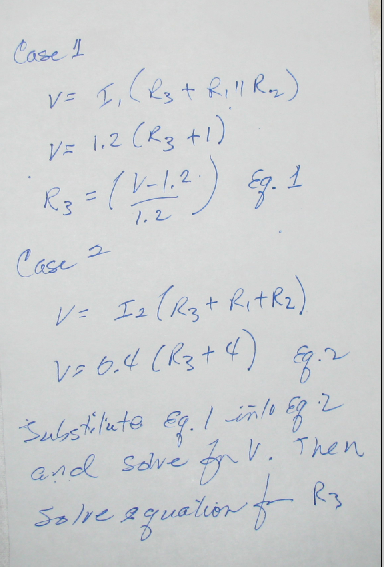 Case 1
V = I₁ (R₃ + R₁ || R₂)
V = 1.2 (R₃ + 1)
R₃ = ( (V-1.2) / 1.2 ) Eq. 1
Case 2
V = I₂ (R₃ + R₁ + R₂)
V = 0.4 (R₃ + 4) Eq. 2
Substitute Eq. 1 into Eq. 2
and solve for V. Then
solve equation for R₃